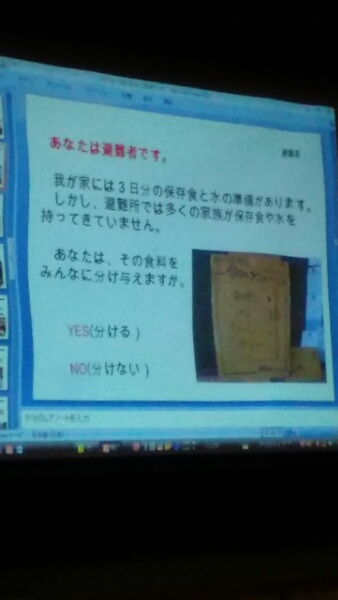 あなたは避難者です。
避難者
我が家には3日分の保存食と水の準備があります。
しかし、避難所では多くの家族が保存食や水を
持ってきていません。
あなたは、その食料を
みんなに分け与えますか。
YES(分ける)
NO(分けない)
クリックしてノートを入力